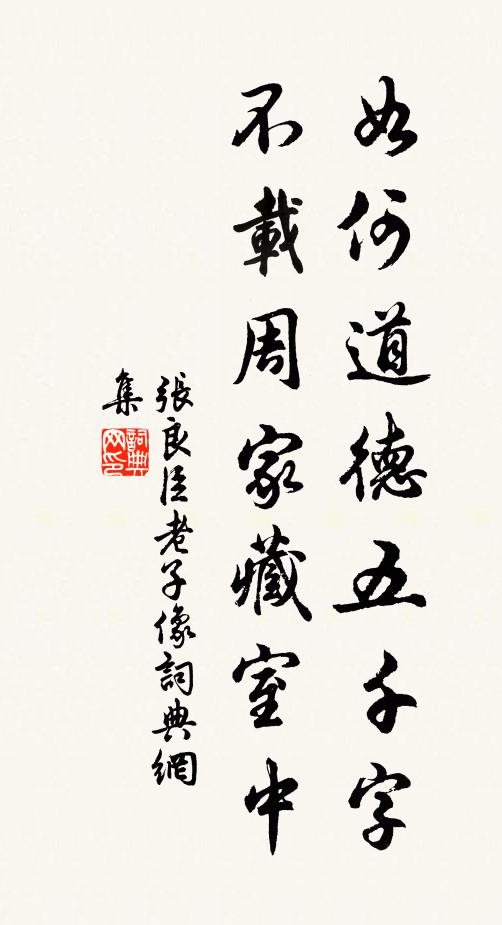 如何道德五千字
不載周家藏室中
張良臣老子像詞典網
集
詞典
网印